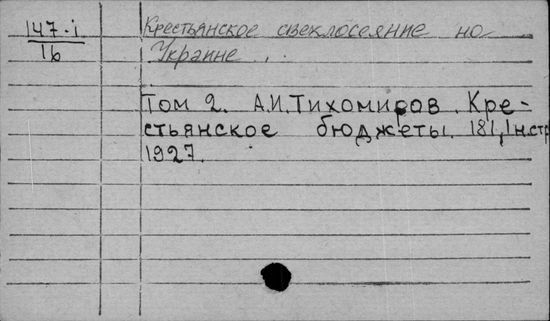 147.i
16
Крестьянское свеклосеяние на
Украине...
Том 2. А.И.Тихомиров. Кре-
стьянское бюджеты. 181,1н.стр
1927.